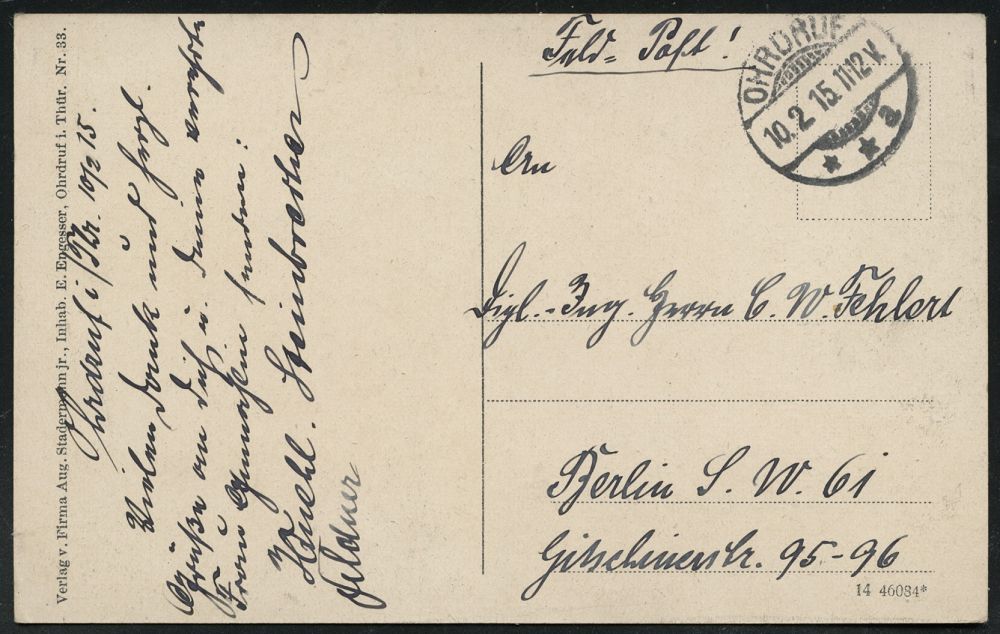 Verlag v. Firma Aug. Stadermann jr., Inhab. E. Engesser, Ohrdruf i. Thür. Nr. 33.
Ohrdruf i/Thr. 10/2 15.
Vielen Dank und herzl.
Grüße an dich u. deine verehrte
Frau Gemahlin senden:
Steinbrecher
Feld-Post!
OHRDRUF
10.2.15.11-12V.
* * a
An
Dipl.-Ing. Herrn C. W. Fehlert
Berlin S. W. 61
Gitschinerstr. 95-96
14 46084*